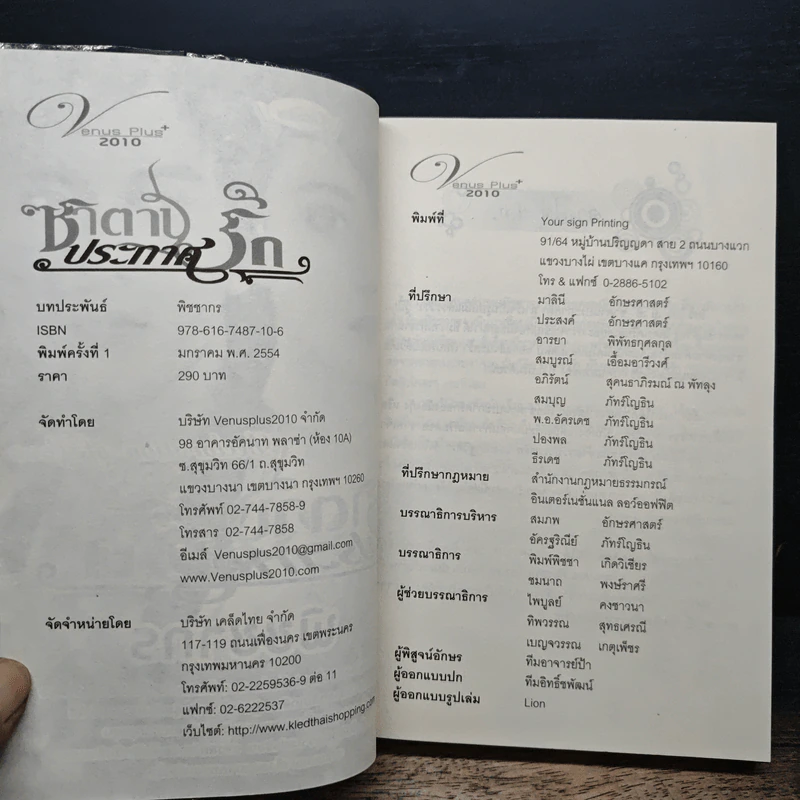 Venus Plus+
2010
ซาตาน
ประกาศรัก
บทประพันธ์ พิชชากร
ISBN 978-616-7487-10-6
พิมพ์ครั้งที่ 1 มกราคม พ.ศ. 2554
ราคา 290 บาท
จัดทำโดย บริษัท Venusplus2010 จำกัด
98 อาคารอัคนาท พลาซ่า (ห้อง 10A)
ซ.สุขุมวิท 66/1 ถ.สุขุมวิท
แขวงบางนา เขตบางนา กรุงเทพฯ 10260
โทรศัพท์ 02-744-7858-9
โทรสาร 02-744-7858
อีเมล์ Venusplus2010@gmail.com
www.Venusplus2010.com
จัดจำหน่ายโดย บริษัท เคล็ดไทย จำกัด
117-119 ถนนเฟื่องนคร เขตพระนคร
กรุงเทพมหานคร 10200
โทรศัพท์: 02-2259536-9 ต่อ 11
แฟกซ์: 02-6222537
เว็บไซต์: http://www.kledthaishopping.com
Venus Plus+
2010
พิมพ์ที่ Your sign Printing
91/64 หมู่บ้านปริญญดา สาย 2 ถนนบางแวก
แขวงบางไผ่ เขตบางแค กรุงเทพฯ 10160
โทร & แฟกซ์ 0-2886-5102
ที่ปรึกษา มาลินี อักษรศาสตร์
ประสงค์ อักษรศาสตร์
อารยา พิพัทธกุศลกุล
สมบูรณ์ เอื้อมอารีวงศ์
อภิรัตน์ สุคนธาภิรมณ์ ณ พัทลุง
สมบุญ ภัทร์โญธิน
พ.อ.อัครเดช ภัทร์โญธิน
ปองพล ภัทร์โญธิน
ธีรเดช ภัทร์โญธิน
ที่ปรึกษากฎหมาย สำนักงานกฎหมายธรรมกรณ์
อินเตอร์เนชั่นแนล ลอว์ออฟฟิต
บรรณาธิการบริหาร สมภพ อักษรศาสตร์
อัครฐริณีย์ ภัทร์โญธิน
บรรณาธิการ พิมพ์พิชชา เกิดวิเชียร
ชมนาถ พงษ์ราศรี
ผู้ช่วยบรรณาธิการ ไพบูลย์ คงชาวนา
ทิพวรรณ สุทธเศรณี
เบญจวรรณ เกตุเพ็ชร
ผู้พิสูจน์อักษร ทีมอาจารย์ป้า
ผู้ออกแบบปก ทีมอิทธิ์ชพัฒน์
ผู้ออกแบบรูปเล่ม Lion